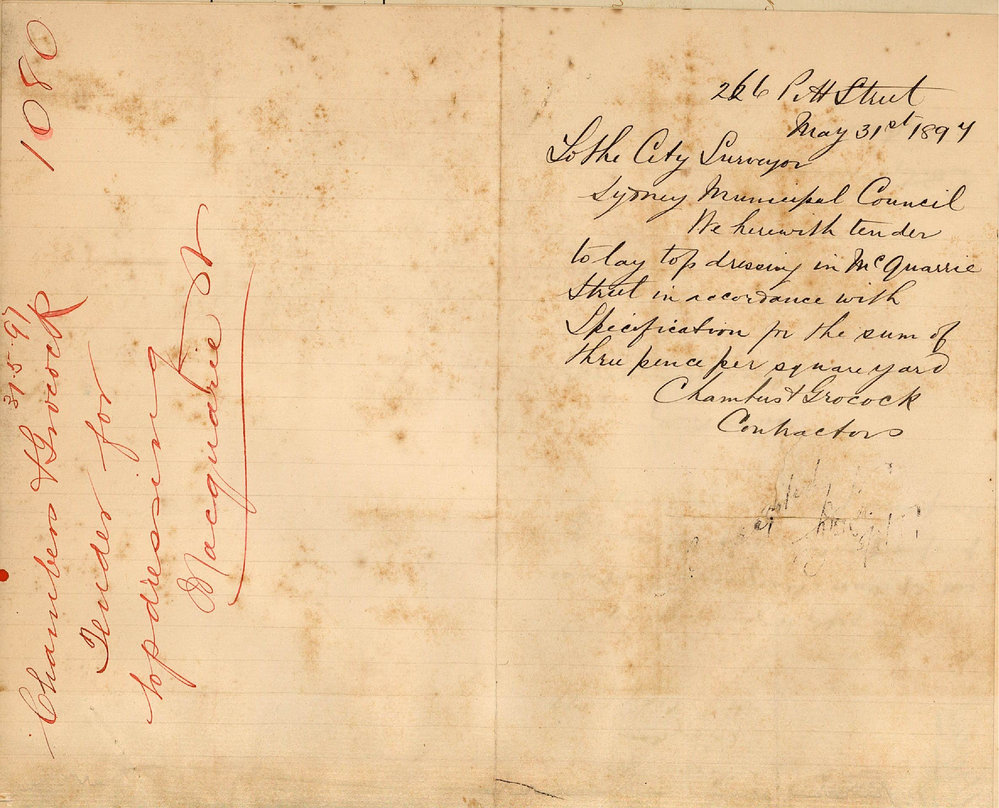 1080
31.5.97
Chambers & Grocock
Tender for
topdressing
Macquarie St
266 Pitt Street
May 31st 1897
To the City Surveyor
Sydney Municipal Council
We herewith tender
to lay top dressing in McQuarrie
Street in accordance with
Specification for the sum of
three pence per square yard
Chambers & Grocock
Contractors